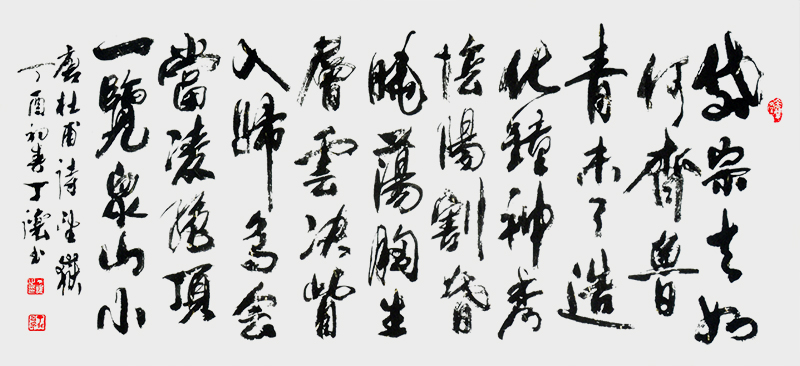 岱宗夫如
何齊魯
青未了造
化鐘神秀
陰陽割昏
曉蕩胸生
層雲決眥
入歸鳥會
當凌絕頂
一覽眾山小
唐杜甫詩望嶽
丁酉初春丁书